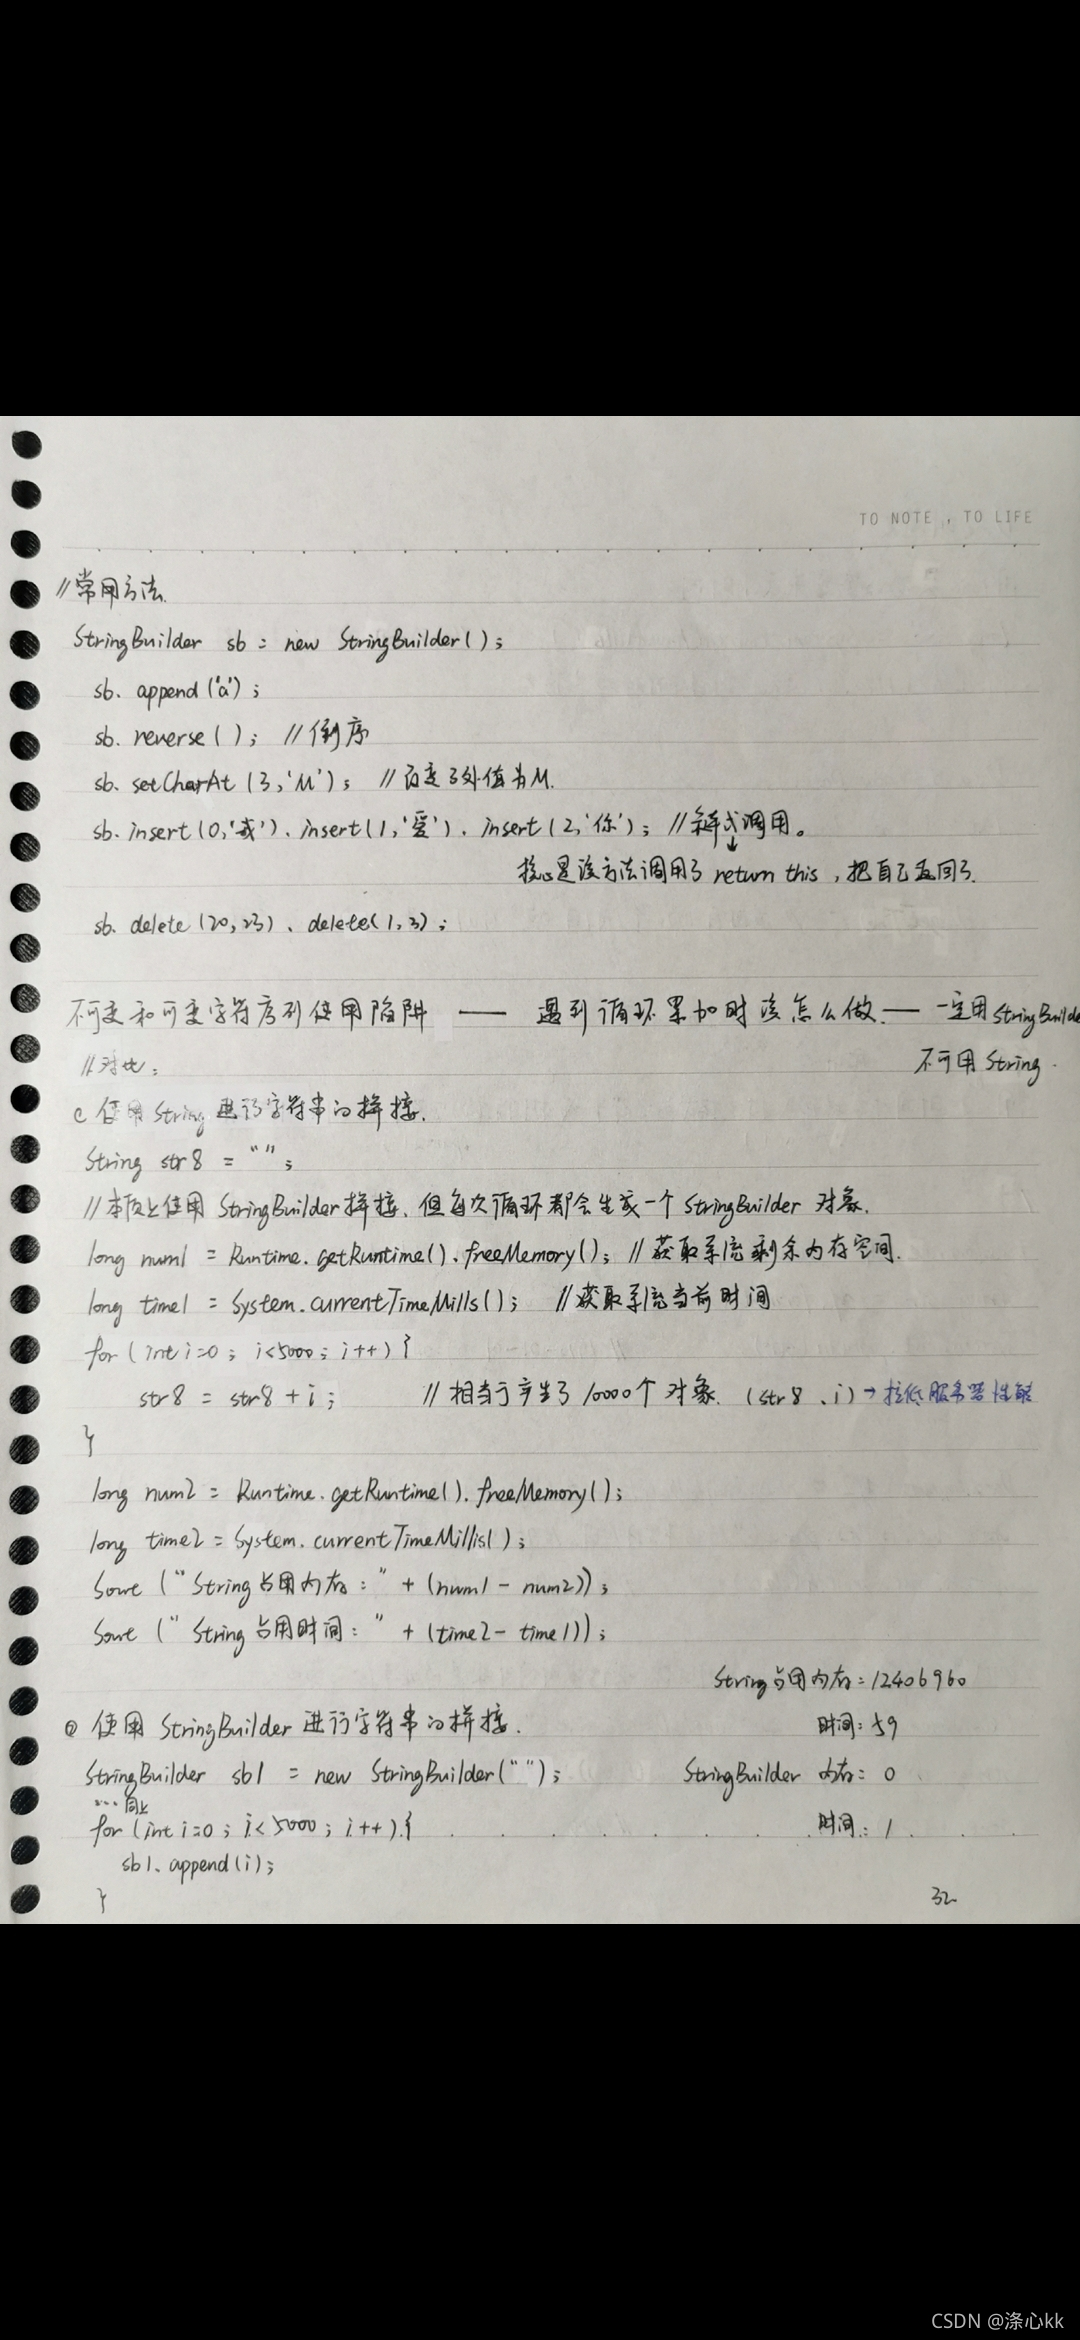 TO NOTE , TO LIFE
//常用方法.
StringBuilder sb = new StringBuilder();
sb. append('a');
sb. reverse(); //倒序
sb. setCharAt(3,'M'); //改变3处值为M.
sb. insert(0,'我'). insert(1,'爱'). insert(2,'你'); //链式调用。
核心是该方法调用了 return this , 把自己返回了.
sb. delete(20,23). delete(1,3);
不可变和可变字符序列使用陷阱 —— 遇到循环累加时该怎么做.—— 一定用StringBuilde
//对比: 不可用String.
使用String进行字符串的拼接.
String str8 = "";
//本质上使用StringBuilder拼接, 但每次循环都会生成一个StringBuilder对象.
long num1 = Runtime.getRuntime().freeMemory(); //获取系统剩余内存空间.
long time1 = System.currentTimeMills(); //获取系统当前时间
for (int i=0; i<5000; i++) {
str8 = str8 + i; //相当于产生了10000个对象. (str8 、i) → 拉低服务器性能
}
long num2 = Runtime.getRuntime().freeMemory();
long time2 = System.currentTimeMillis();
Sout ("String占用内存:" + (num1 - num2));
Sout ("String占用时间:" + (time2 - time1));
String占用内存:12406960
② 使用StringBuilder进行字符串的拼接. 时间:59
StringBuilder sb1 = new StringBuilder(""); StringBuilder 内存: 0
... 同上
for (int i=0; i<5000; i++) { 时间: 1
sb1. append(i);
} 32
CSDN @涤心kk